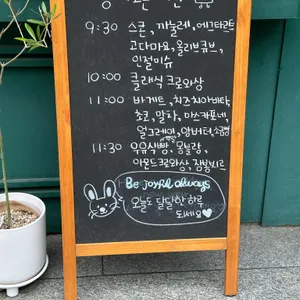 9:30 스콘, 까눌레, 에그타르트
고다마요, 올리브큐브,
인절미슈
10:00 클래식 크로와상
11:00 바게트, 치즈치아바타,
초코, 말차, 마스카포네,
얼그레이, 앙버터, 소금빵
11:30 우유식빵, 몽블랑,
아몬드크로와상, 잠봉뵈르
Be joyful always
오늘도 달달한 하루
되세요